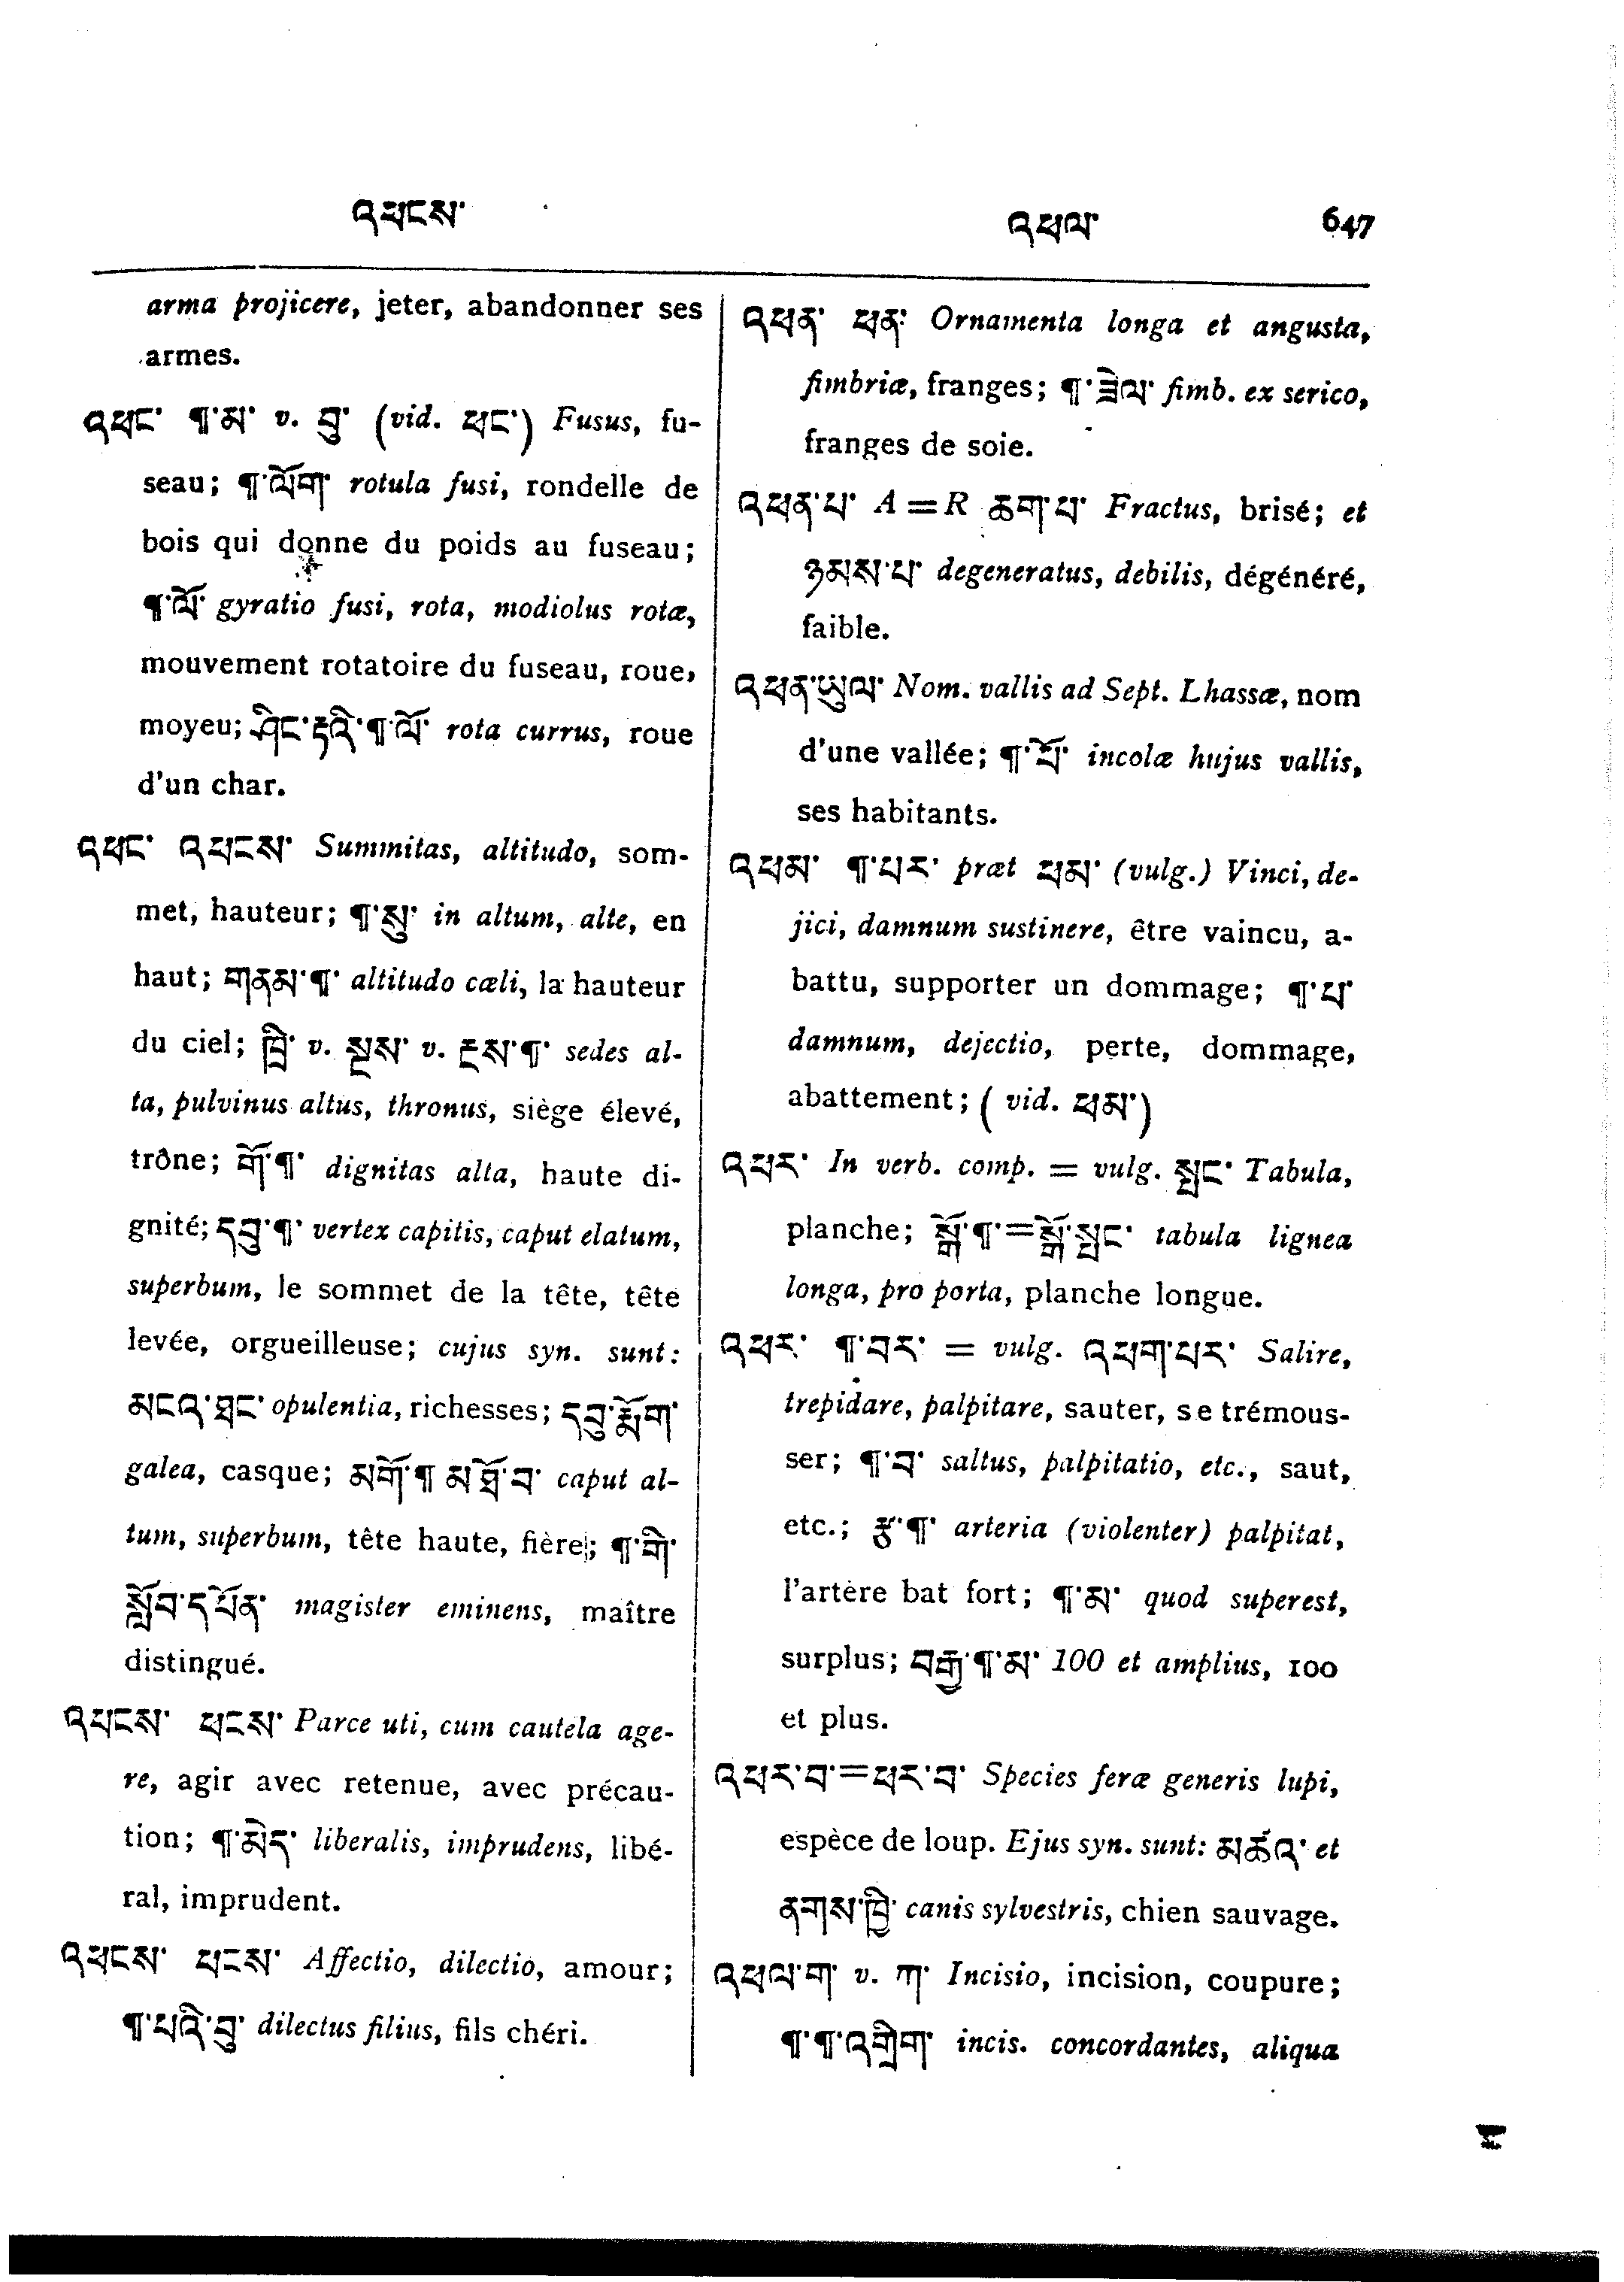 འཕངས་
འཕལ་ 647
arma projicere, jeter, abandonner ses
armes.
འཕང་ ¶་མ་ v. བུ་ (vid. ཕང་) Fusus, fu-
seau; ¶་ལོག་ rotula fusi, rondelle de
bois qui donne du poids au fuseau;
¶་ལོ་ gyratio fusi, rota, modiolus rotæ,
mouvement rotatoire du fuseau, roue,
moyeu; ཤིང་རྟའི་¶་ལོ་ rota currus, roue
d'un char.
འཕང་ འཕངས་ Summitas, altitudo, som-
met, hauteur; ¶་སུ་ in altum, alte, en
haut; གནམ་¶་ altitudo cæli, la hauteur
du ciel; ཁྲི་ v. སྔས་ v. ངས་¶་ sedes al-
ta, pulvinus altus, thronus, siège élevé,
trône; གོ་¶་ dignitas alta, haute di-
gnité; དབུ་¶་ vertex capitis, caput elatum,
superbum, le sommet de la tête, tête
levée, orgueilleuse; cujus syn. sunt:
མངའ་ཐང་ opulentia, richesses; དབུ་རྨོག་
galea, casque; མགོ་¶ མཐོ་བ་ caput al-
tum, superbum, tête haute, fière; ¶་གི་
སློབ་དཔོན་ magister eminens, maître
distingué.
འཕངས་ ཕངས་ Parce uti, cum cautela age-
re, agir avec retenue, avec précau-
tion; ¶་མེད་ liberalis, imprudens, libé-
ral, imprudent.
འཕངས་ ཕངས་ Affectio, dilectio, amour;
¶་པའི་བུ་ dilectus filius, fils chéri.
འཕན་ ཕན་ Ornamenta longa et angusta,
fimbriæ, franges; ¶་ཟེལ་ fimb. ex serico,
franges de soie.
འཕན་པ་ A = R ཆག་པ་ Fractus, brisé; et
ཉམས་པ་ degeneratus, debilis, dégénéré,
faible.
འཕན་ཡུལ་ Nom. vallis ad Sept. Lhassæ, nom
d'une vallée; ¶་པོ་ incolæ hujus vallis,
ses habitants.
འཕམ་ ¶་པར་ præt ཕམ་ (vulg.) Vinci, de-
jici, damnum sustinere, être vaincu, a-
battu, supporter un dommage; ¶་པ་
damnum, dejectio, perte, dommage,
abattement; (vid. ཕམ་)
འཕར་ In verb. comp. = vulg. སྤང་ Tabula,
planche; སྒོ་¶་=སྒོ་སྤང་ tabula lignea
longa, pro porta, planche longue.
འཕར་ ¶་བར་ = vulg. འཕག་པར་ Salire,
trepidare, palpitare, sauter, se trémous-
ser; ¶་བ་ saltus, palpitatio, etc., saut,
etc.; རྩ་¶་ arteria (violenter) palpitat,
l'artère bat fort; ¶་མ་ quod superest,
surplus; བརྒྱ་¶་མ་ 100 et amplius, 100
et plus.
འཕར་བ་=ཕར་བ་ Species feræ generis lupi,
espèce de loup. Ejus syn. sunt: མཚའ་ et
ནགས་ཁྱི་ canis sylvestris, chien sauvage.
འཕལ་ག་ v. ཀ་ Incisio, incision, coupure;
¶་¶་འགྲིག་ incis. concordantes, aliqua